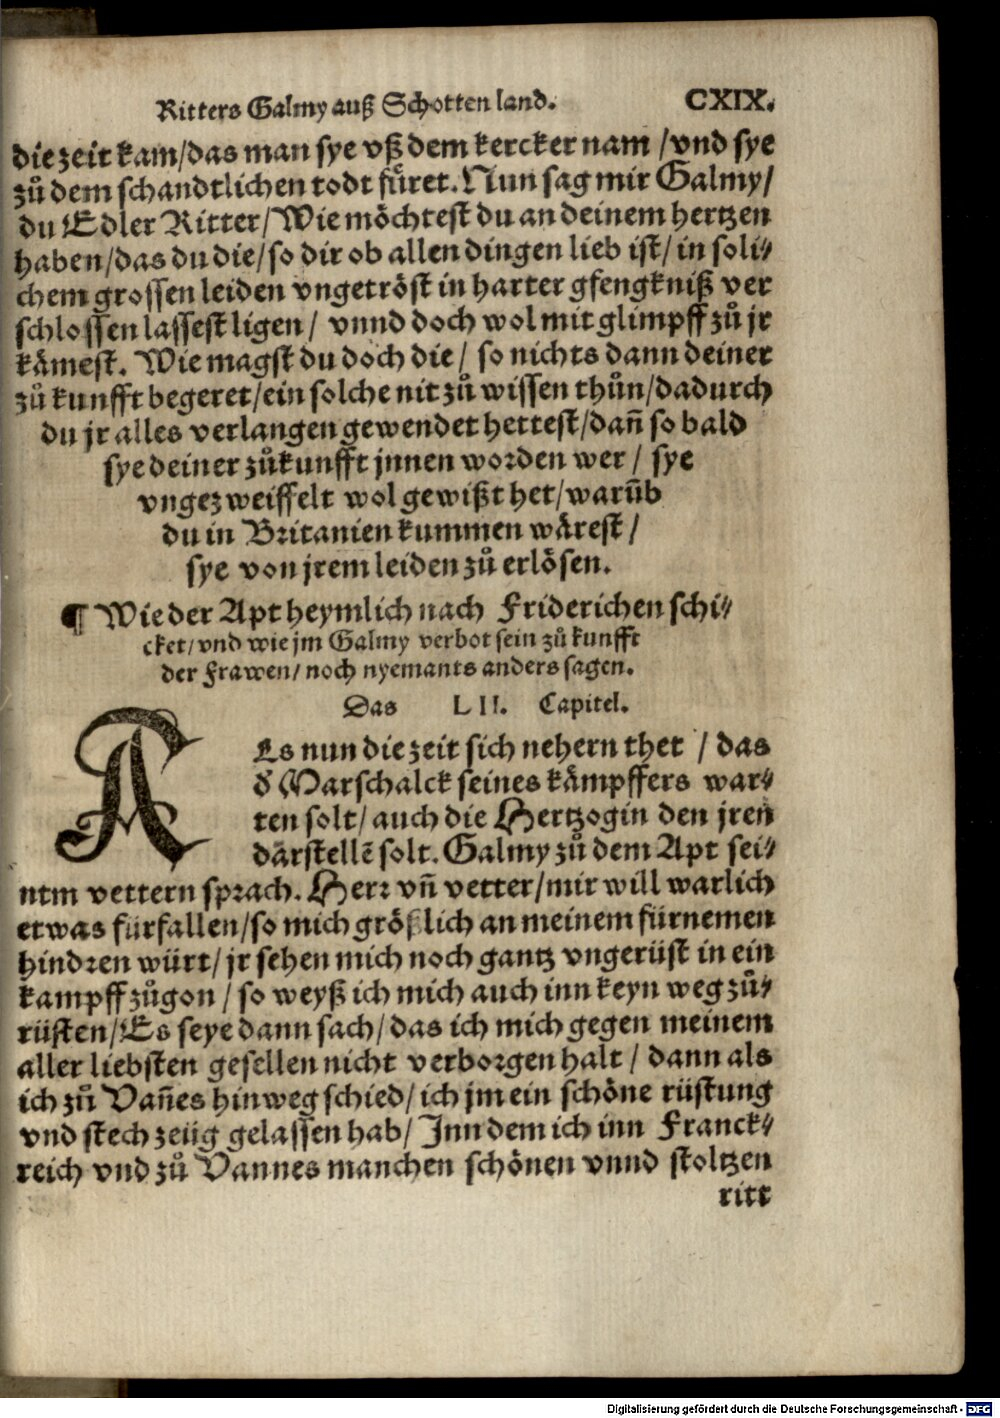 Ritters Galmy auß Schotten land. CXIX.
die zeit kam/das man sye vß dem kercker nam /vnd sye
zů dem schandtlichen todt fůret. Nun sag mir Galmy/
du Edler Ritter/Wie möchtest du an deinem hertzen
haben/das du die/so dir ob allen dingen lieb ist/in soli⸗
chem grossen leiden vngetröst in harter gfengkniß ver
schlossen lassest ligen/ vnnd doch wol mit glimpff zů jr
kämest. Wie magst du doch die/ so nichts dann deiner
zů kunfft begeret/ein solche nit zů wissen thůn/dadurch
du jr alles verlangen gewendet hettest/dañ so bald
sye deiner zůkunfft jnnen worden wer/ sye
vngezweiffelt wol gewißt het/warũb
du in Britanien kummen wärest/
sye von jrem leiden zů erlösen.
¶ Wie der Apt heymlich nach Friderichen schi⸗
cket/vnd wie jm Galmy verbot sein zů kunfft
der Frawen/noch nyemants anders sagen.
Das LII. Capitel.
ALs nun die zeit sich nehern thet / das
d̕ Marschalck seines kämpffers war⸗
ten solt/auch die Hertzogin den jren
därstellẽ solt. Galmy zů dem Apt sei⸗
ntm vettern sprach. Herr vñ vetter/mir will warlich
etwas fürfallen/so mich größlich an meinem fürnemen
hindren würt/jr sehen mich noch gantz vngerüst in ein
kampff zůgon/so weyß ich mich auch inn keyn weg zů⸗
rüsten/Es seye dann sach/das ich mich gegen meinem
aller liebsten gesellen nicht verborgen halt/ dann als
ich zů Vañes hinweg schied/ich jm ein schöne rüstung
vnd stech zeüg gelassen hab/ Jnn dem ich inn Franck⸗
reich vnd zů Vannes manchen schönen vnnd stoltzen
ritt
Digitalisierung gefördert durch die Deutsche Forschungsgemeinschaft - DFG